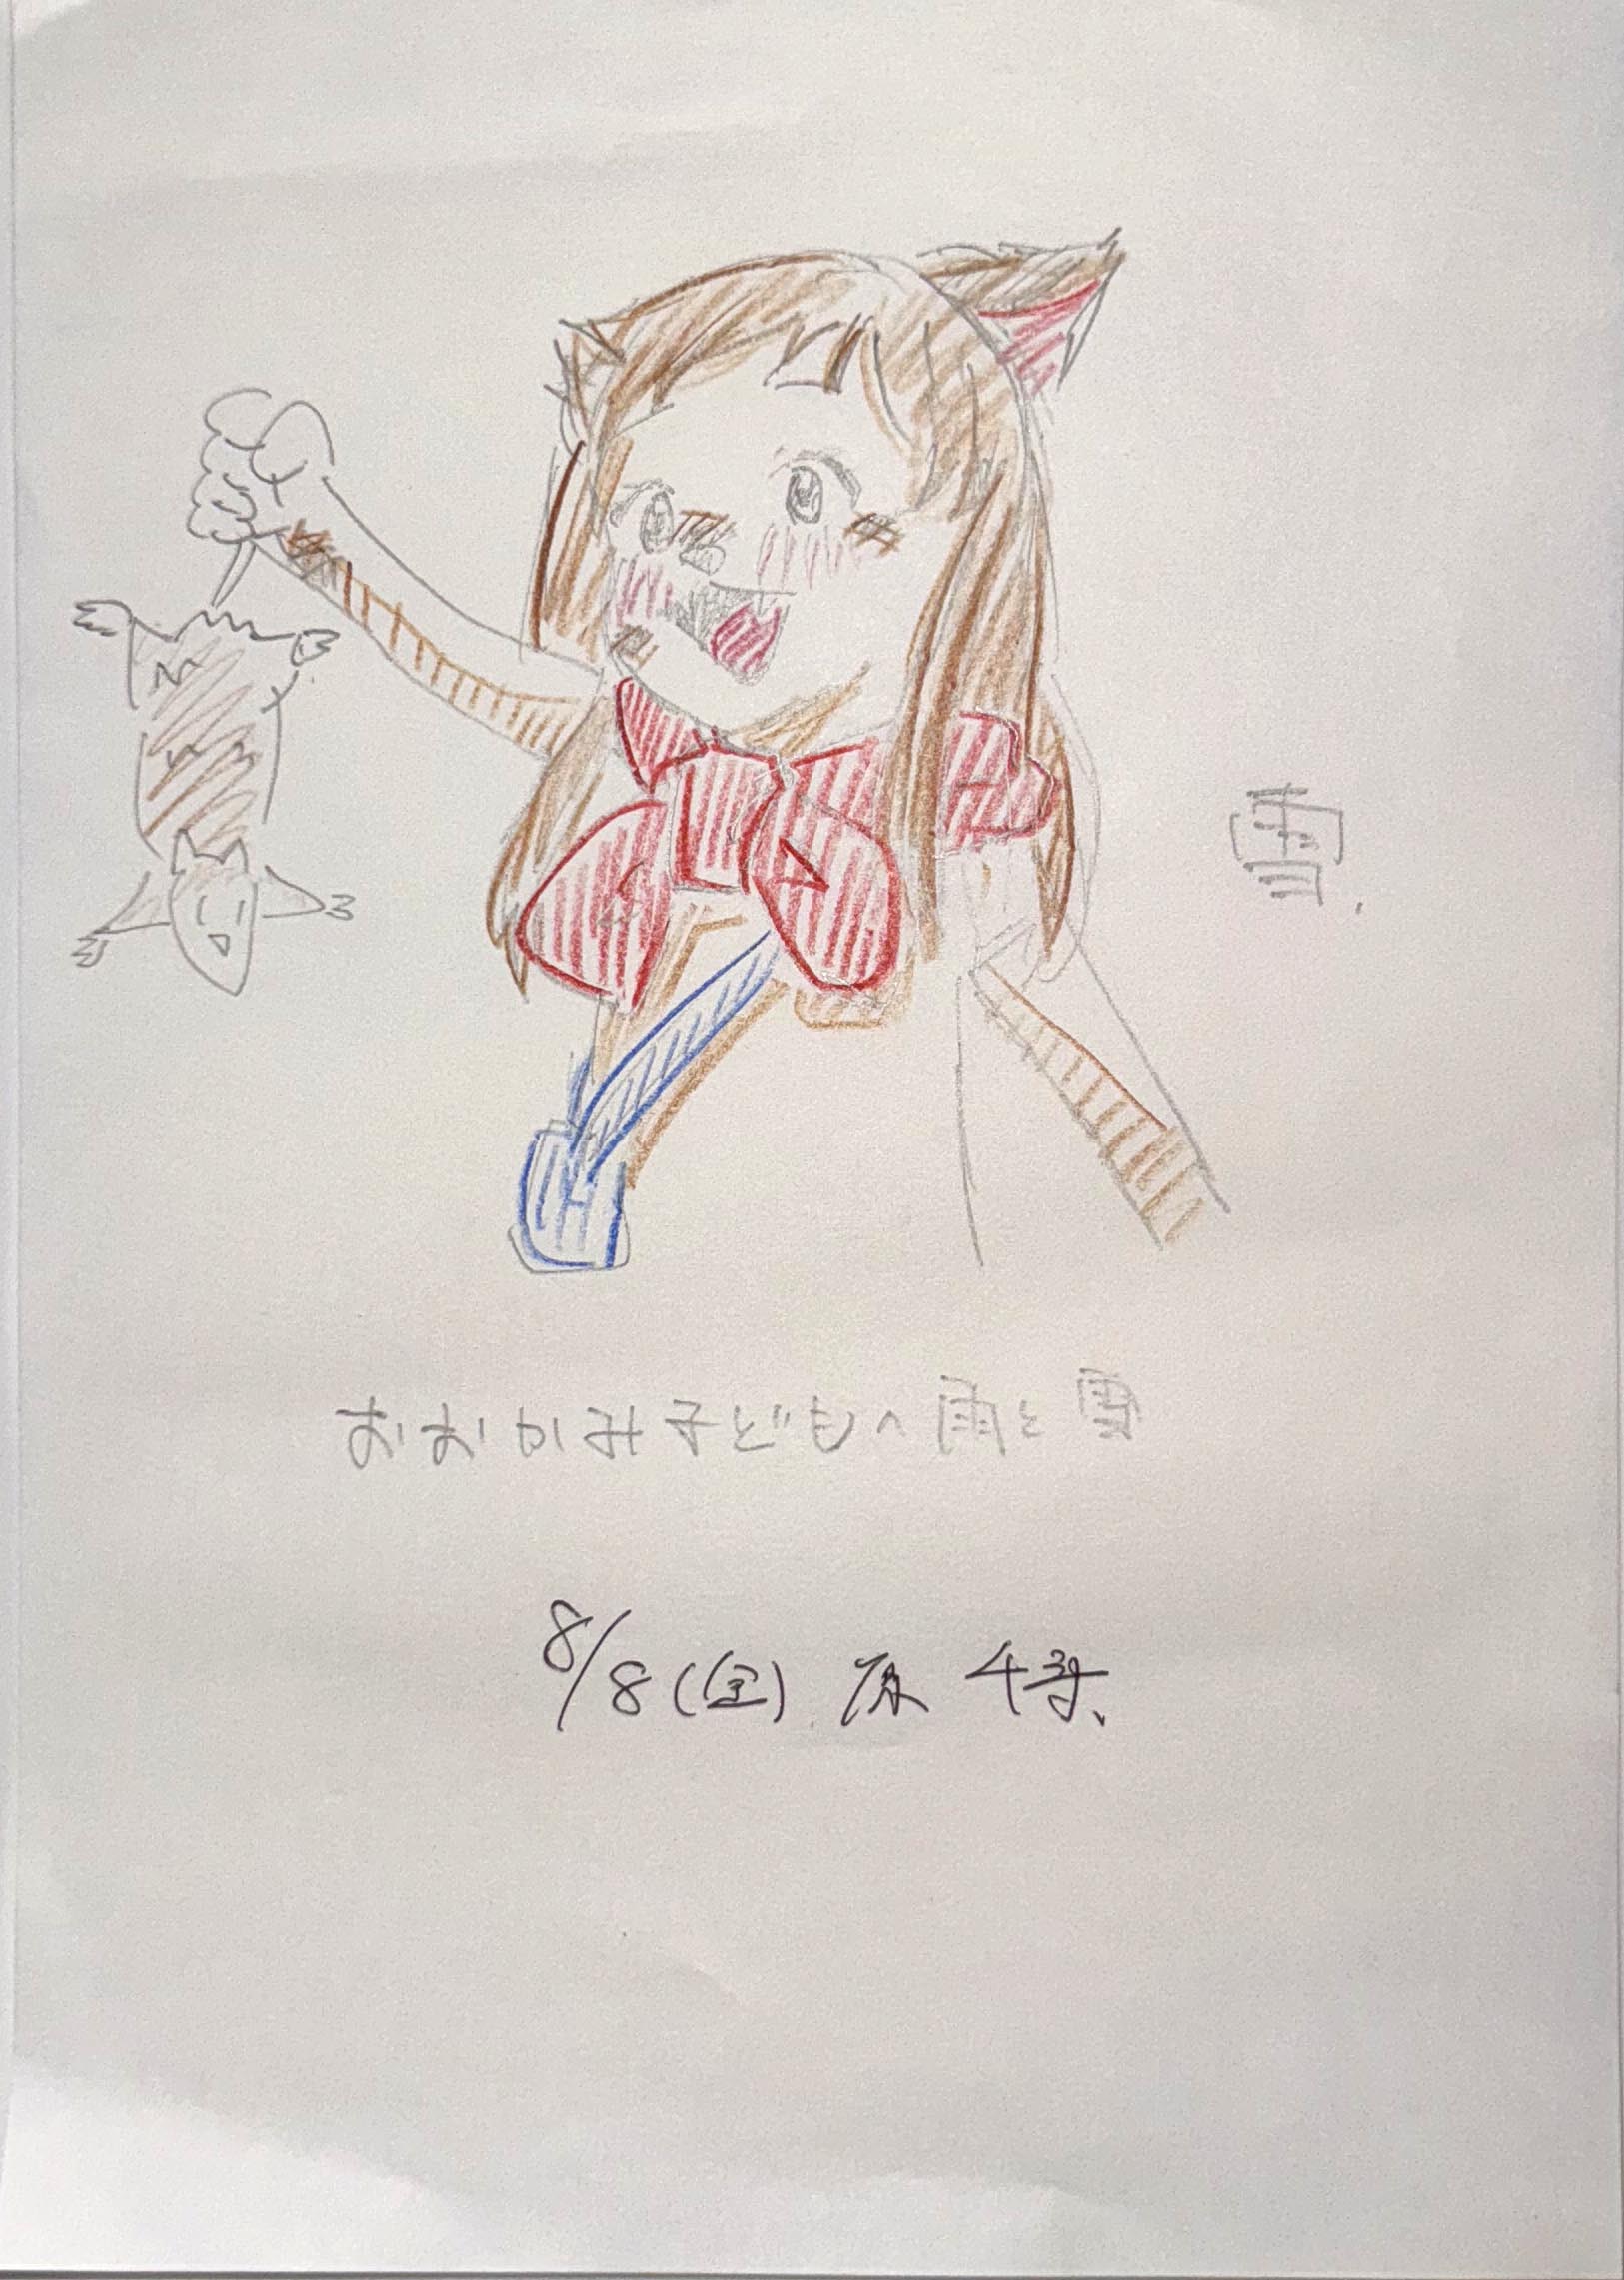 雪.
おおかみ子どもへ雨と雪
8/8(金) 原